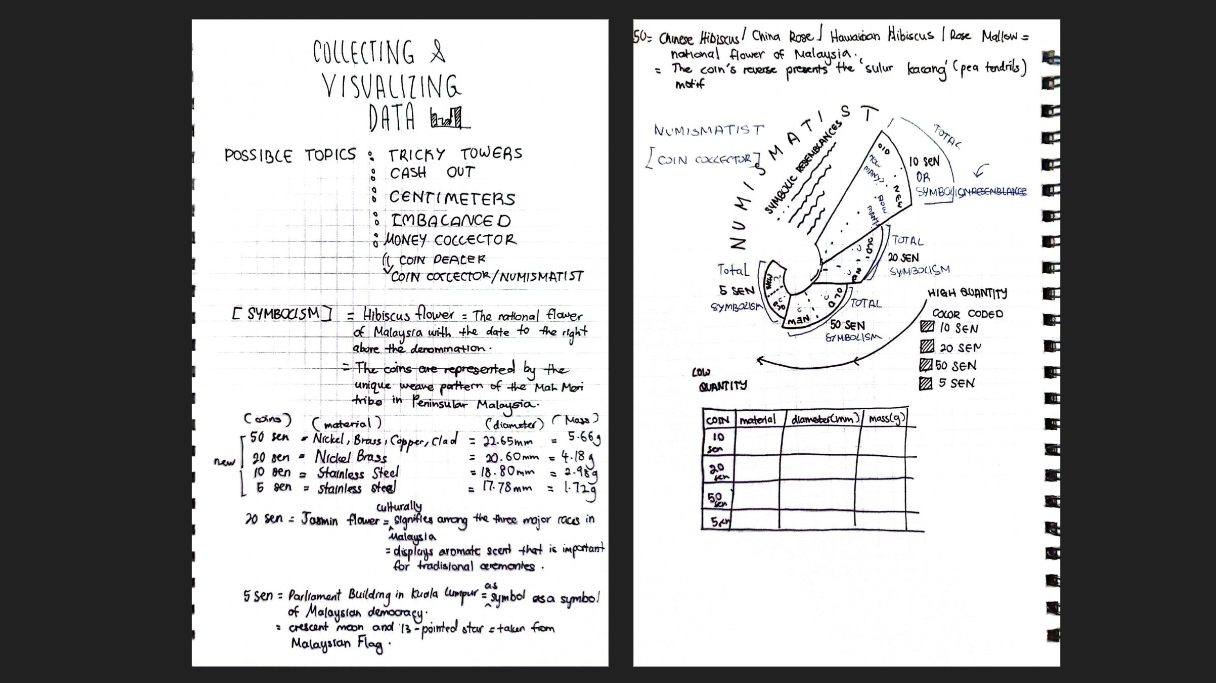 COLLECTING &
VISUALIZING
DATA
POSSIBLE TOPICS : TRICKY TOWERS
: CASH OUT
: CENTIMETERS
: IMBALANCED
: MONEY COLLECTOR
COIN DEALER
COIN COLLECTOR/NUMISMATIST
[SYMBOLISM] = Hibiscus flower = The national flower
of Malaysia with the date to the right
above the denomination.
= The coins are represented by the
unique weave pattern of the Mah Meri
tribe in Peninsular Malaysia.
(coins) (material) (diameter) (Mass)
50 sen = Nickel, Brass, Copper, Clad = 22.65mm = 5.66g
new 20 sen = Nickel Brass = 20.60mm = 4.18g
10 sen = Stainless Steel = 18.80mm = 2.98g
5 sen = stainless steel = 17.78mm = 1.72g
culturally
20 sen = Jasmin flower = signifies among the three major races in
Malaysia
= displays aromate scent that is important
for tradisional ceremonies.
as
5 sen = Parliament Building in Kuala Lumpur = symbol as a symbol
of Malaysian democracy.
= crescent moon and 13-pointed star = taken from
Malaysian Flag.
50 = Chinese Hibiscus / China Rose / Hawaiian Hibiscus / Rose Mallow =
national flower of Malaysia.
= The coin's reverse presents the 'sulur kacang' (pea tendrils)
motif
NUMISMATIST
[COIN COLLECTOR]
NUMISMATIST
SYMBOLIC RESEMBLANCES
TOTAL
OLD
NEW
10 SEN
OR
SYMBOLISM RESEMBLANCE
OLD
NEW
TOTAL
20 SEN
SYMBOLISM
OLD
NEW
TOTAL
50 SEN
SYMBOLISM
Total
5 SEN
SYMBOLISM
HIGH QUANTITY
LOW
QUANTITY
COLOR CODED
10 SEN
20 SEN
50 SEN
5 SEN
COIN material diameter(mm) mass(g)
10
sen
20
sen
50
sen
5sen